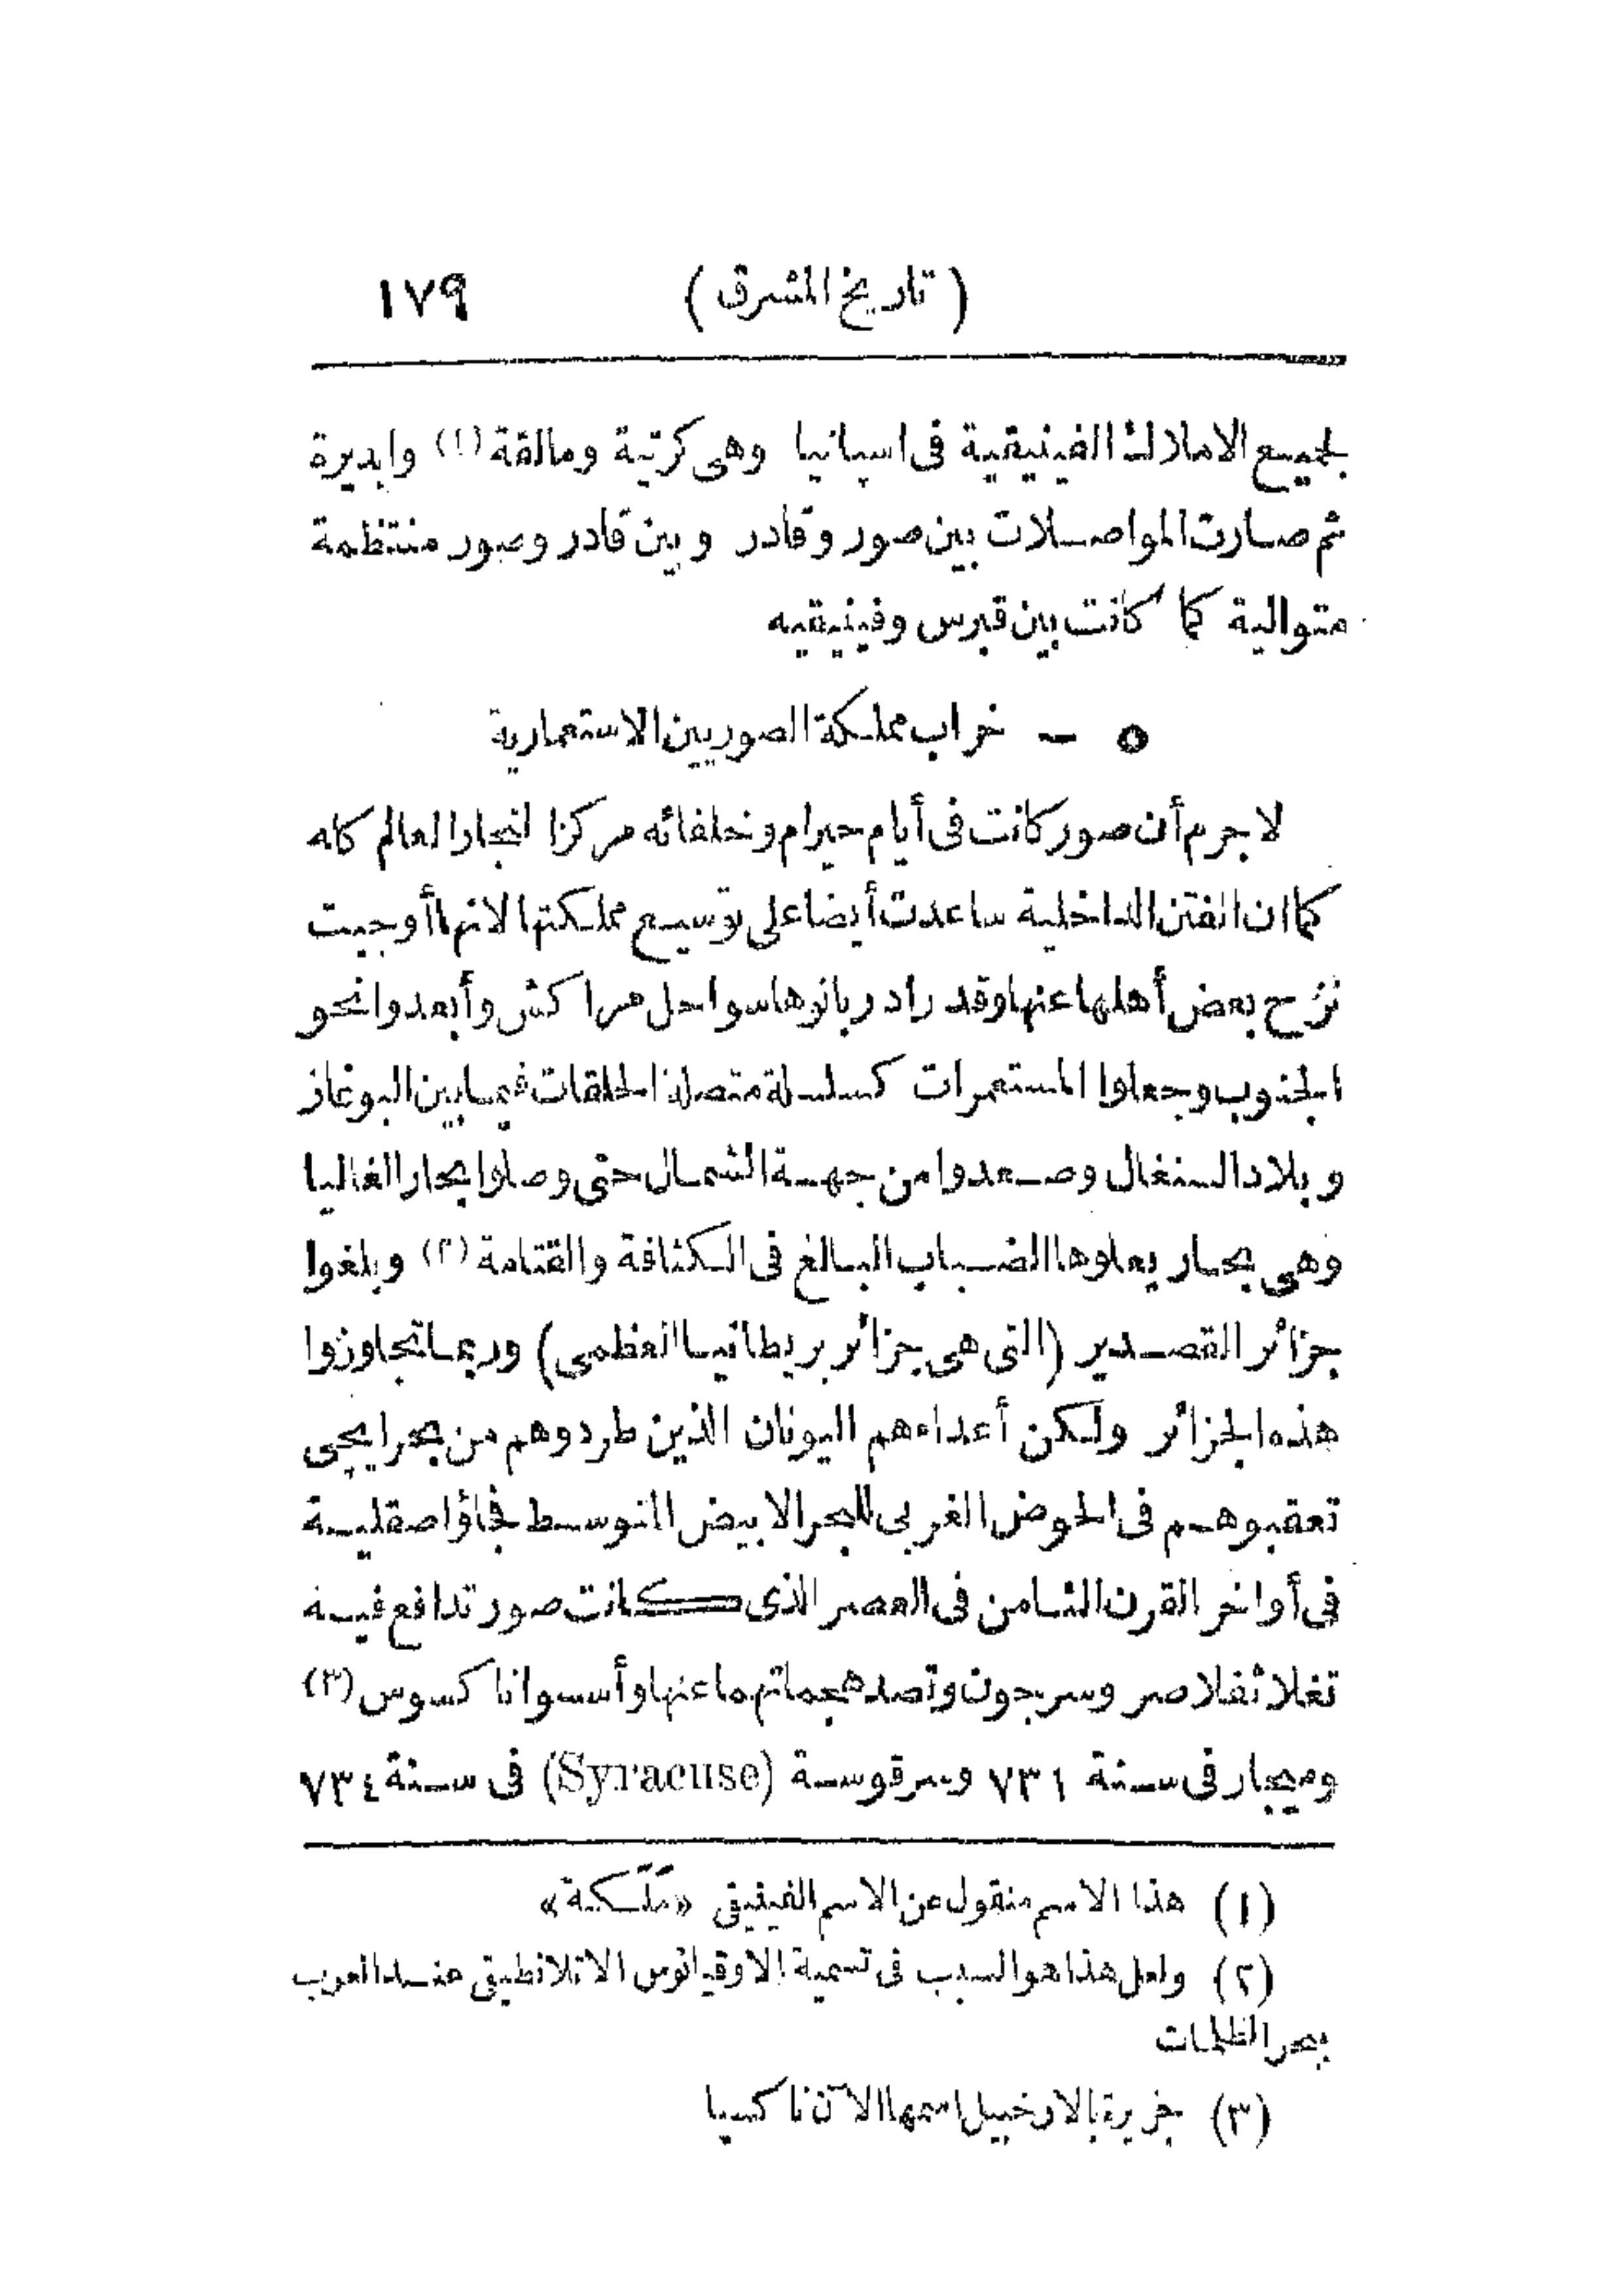 ( تاريخ المشرق ) ١٧٩
لجميع الاملاك الفينيقية فى اسپانيا وهى كرتية ومالقة (١) وابديرة
ثم صارت المواصلات بين صور وقادر وبين قادر وصور منتظمة
متوالية كما كانت بين قبرس وفينيقيه
٥ – خراب مملكة الصوريين الاستعمارية
لا جرم أن صور كانت فى أيام حيرام وخلفائه مركزا لتجار العالم كله
كما ان الفتن الداخلية ساعدت أيضا على توسيع مملكتها لانها أوجبت
نزح بعض أهلها عنها وقد راد ربانوها سواحل مراكش وأبعدوا نحو
الجنوب وجعلوا المستعمرات كسلسلة متصلة الحلقات فيما بين البوغاز
وبلاد السنغال وصعدوا من جهة الشمال حتى وصلوا بحار الغاليا
وهى بحار يعلوها الضباب البالغ فى الكثافة والقتامة (٢) وبلغوا
جزائر القصدير (التى هى جزائر بريطانيا العظمى) وربما تجاوزوا
هذه الجزائر ولكن أعداءهم اليونان الذين طردوهم من بحر ايجى
تعقبوهم فى الحوض الغربى للبحر الابيض المتوسط فجاؤا صقلية
فى أواخر القرن الثامن فى العصر الذى كانت صور تدافع فيه
تغلاثفلاصر وسرجون وتصد هجماتهما عنها وأسسوا ناكسوس (٣)
وميجار فى سنة ٧٣١ وسرقوسة (Syracuse) فى سنة ٧٣٤
(١) هذا الاسم منقول عن الاسم الفينيقى «ملكة»
(٢) ولعل هذا هو السبب فى تسمية الاوقيانوس الاتلانطيقى عند العرب
ببحر الظلمات
(٣) جزيرة بالارخبيل اسمها الآن ناكسيا